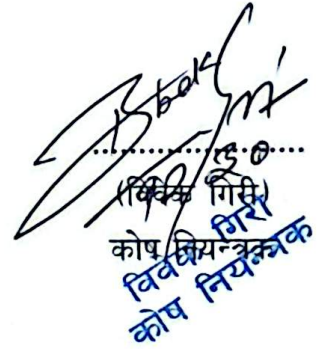 (विवेक गिरी)
कोष नियन्त्रक
विवेक गिरी
कोष नियन्त्रक